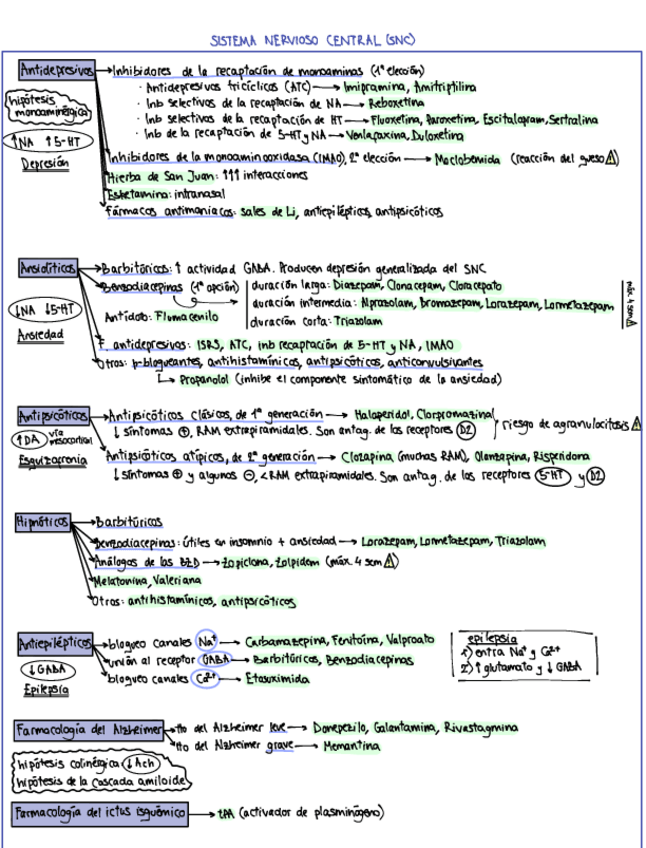 SISTEMA NERVIOSO CENTRAL (SNC)
Antidepresivos → Inhibidores de la recaptación de monoaminas (1ª elección)
· Antidepresivos tricíclicos (ATC) → Imipramina, Amitriptilina
hipótesis monoaminérgica
· Inb selectivos de la recaptación de NA → Reboxetina
· Inb selectivos de la recaptación de HT → Fluoxetina, Paroxetina, Escitalopram, Sertralina
↑NA ↑5-HT
· Inb de la recaptación de 5-HT y NA → Venlafaxina, Duloxetina
Depresión
Inhibidores de la monoaminooxidasa (IMAO), 2ª elección → Moclobemida (reacción del queso ⚠)
Hierba de San Juan: ↑↑↑ interacciones
Esketamina: intranasal
Fármacos antimaniacos: sales de Li, antiepilépticos, antipsicóticos
Ansiolíticos → Barbitúricos: ↑ actividad GABA. Producen depresión generalizada del SNC
Benzodiacepinas (1ª opción)
duración larga: Diazepam, Clonacepam, Cloracepato
duración intermedia: Alprazolam, Bromazepam, Lorazepam, Lormetazepam
duración corta: Triazolam
máx. 4 sem ⚠
↓NA ↓5-HT
Antídoto: Flumacenilo
Ansiedad
F. antidepresivos: ISRS, ATC, inb recaptación de 5-HT y NA, IMAO
Otros: β-bloqueantes, antihistamínicos, antipsicóticos, anticonvulsivantes
↳ Propanolol (inhibe el componente sintomático de la ansiedad)
Antipsicóticos → Antipsicóticos clásicos, de 1ª generación → Haloperidol, Clorpromazina
riesgo de agranulocitosis ⚠
↑DA vía mesocortical
↓ síntomas ⊕, RAM extrapiramidales. Son antag. de los receptores D2
Esquizofrenia
Antipsicóticos atípicos, de 2ª generación → Clozapina (muchas RAM), Olanzapina, Risperidona
↓ síntomas ⊕ y algunos ⊖, < RAM extrapiramidales. Son antag. de los receptores 5-HT y D2
Hipnóticos → Barbitúricos
Benzodiacepinas: útiles en insomnio + ansiedad → Lorazepam, Lormetazepam, Triazolam
Análogos de las BZD → Zopiclona, Zolpidem (máx. 4 sem ⚠)
Melatonina, Valeriana
Otros: antihistamínicos, antipsicóticos
Antiepilépticos → bloqueo canales Na⁺ → Carbamazepina, Fenitoína, Valproato
unión al receptor GABA → Barbitúricos, Benzodiacepinas
bloqueo canales Ca²⁺ → Etosuximida
↓GABA
Epilepsia
epilepsia
1) entra Na⁺ y Ca²⁺
2) ↑ glutamato y ↓ GABA
Farmacología del Alzheimer → tto del Alzheimer leve → Donepezilo, Galantamina, Rivastagmina
tto del Alzheimer grave → Memantina
hipótesis colinérgica ↓Ach
hipótesis de la cascada amiloide
Farmacología del ictus isquémico → tPA (activador de plasminógeno)